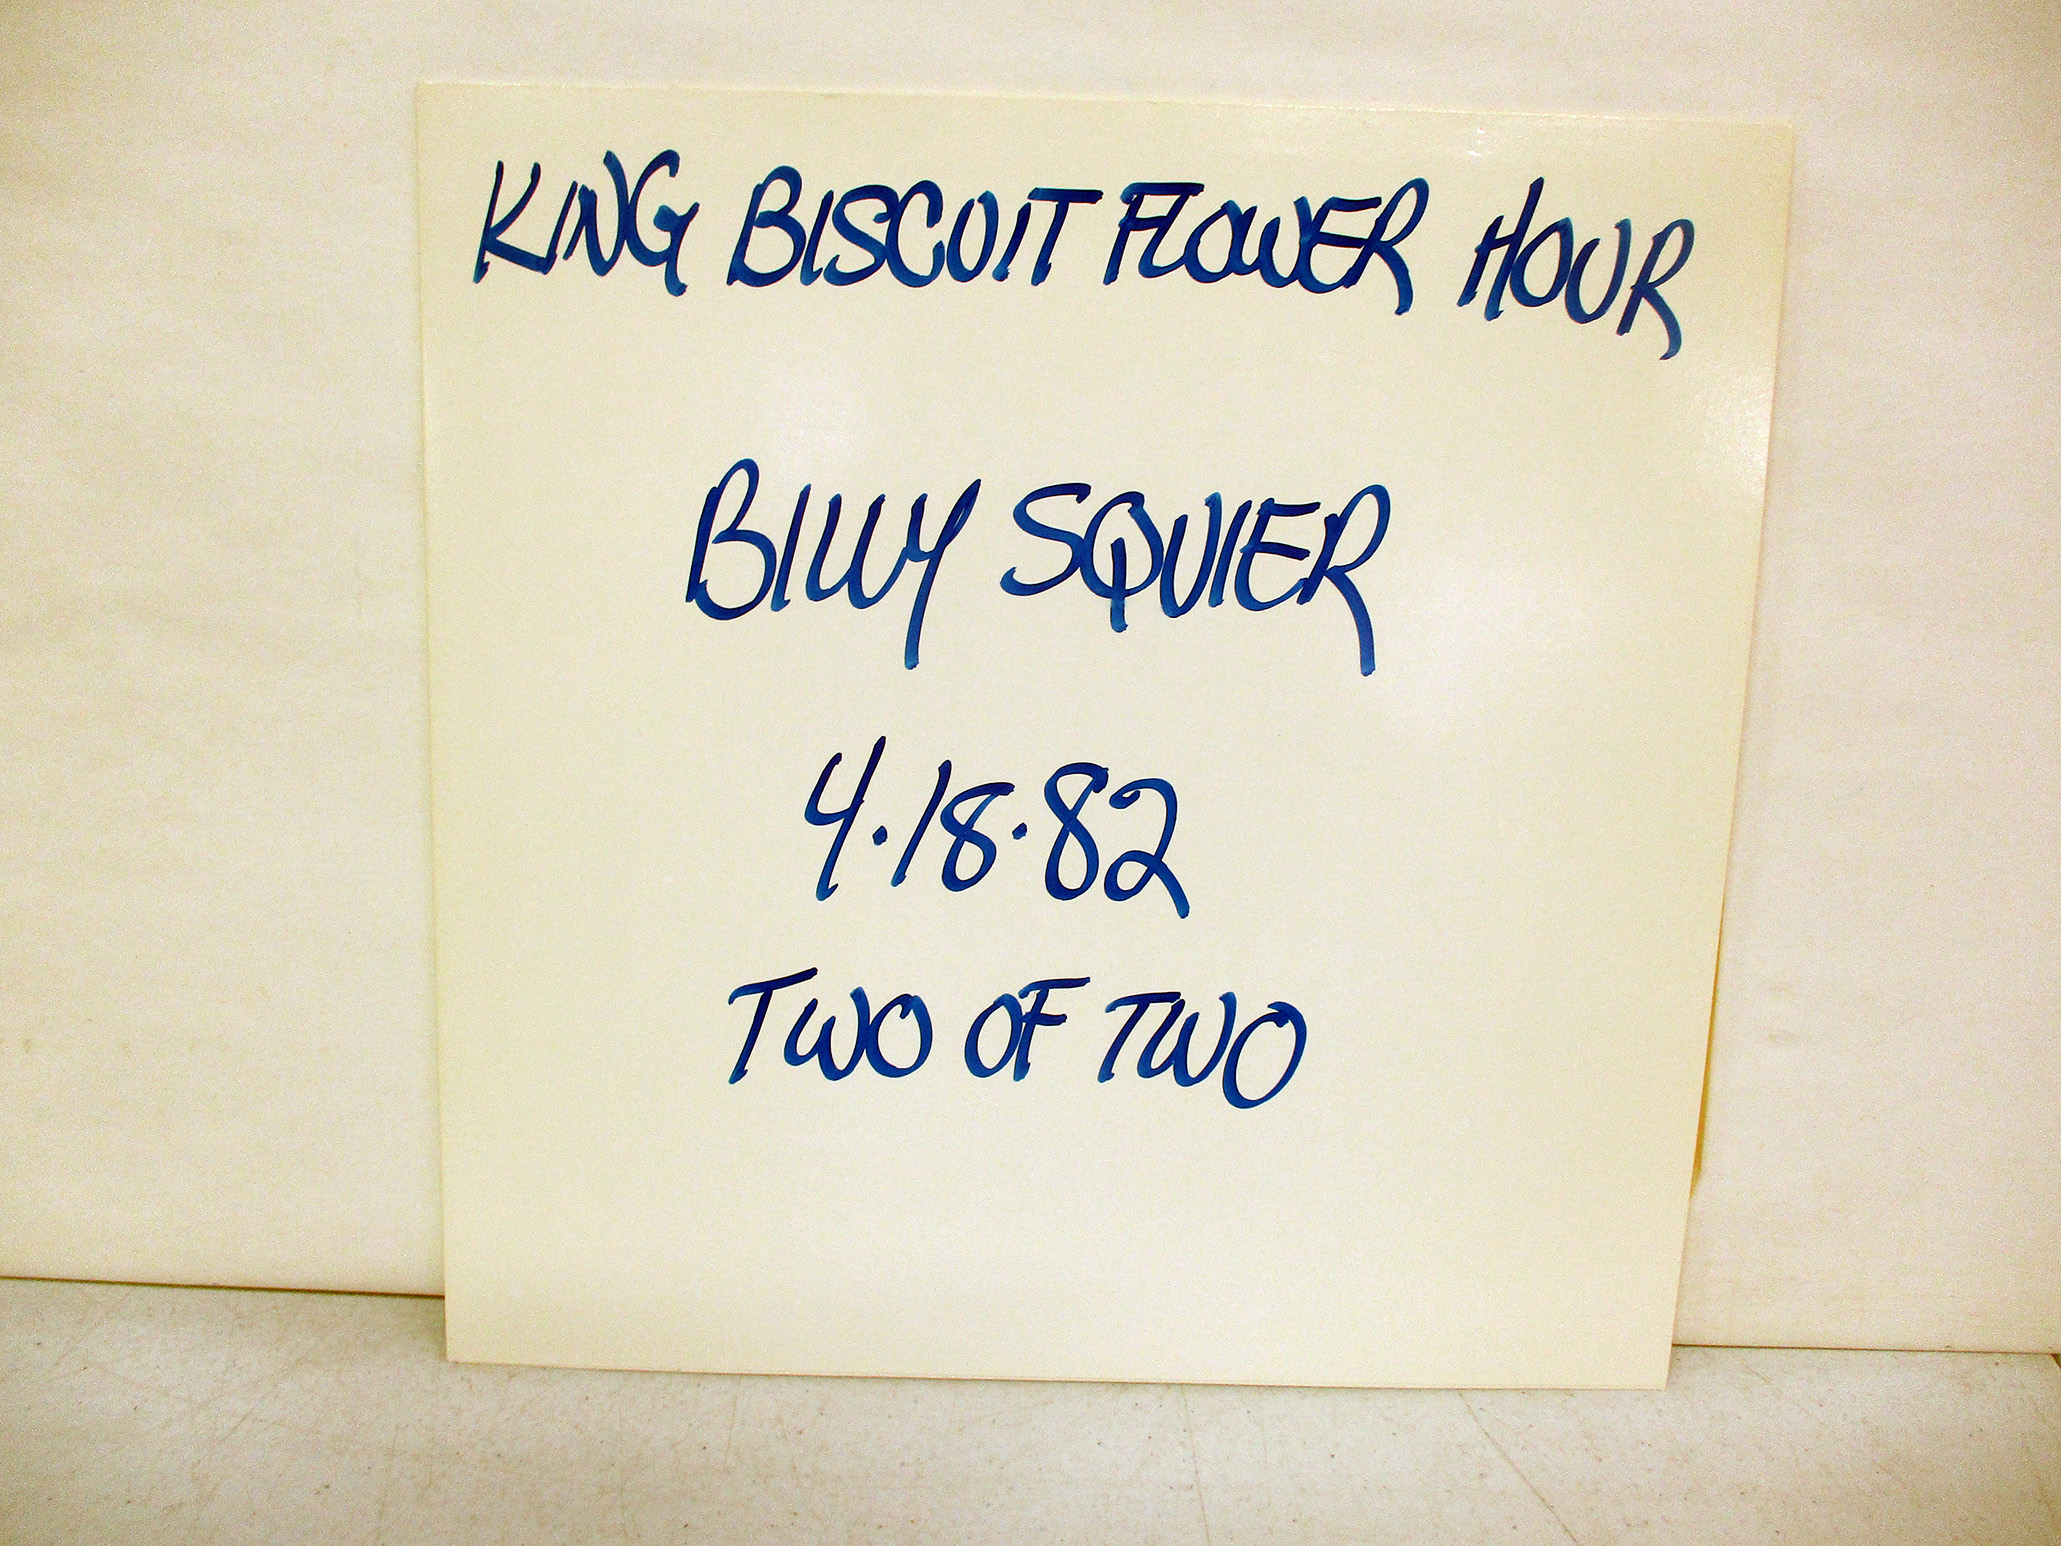 KING BISCUIT FLOWER HOUR
BILLY SQUIER
4.18.82
TWO OF TWO